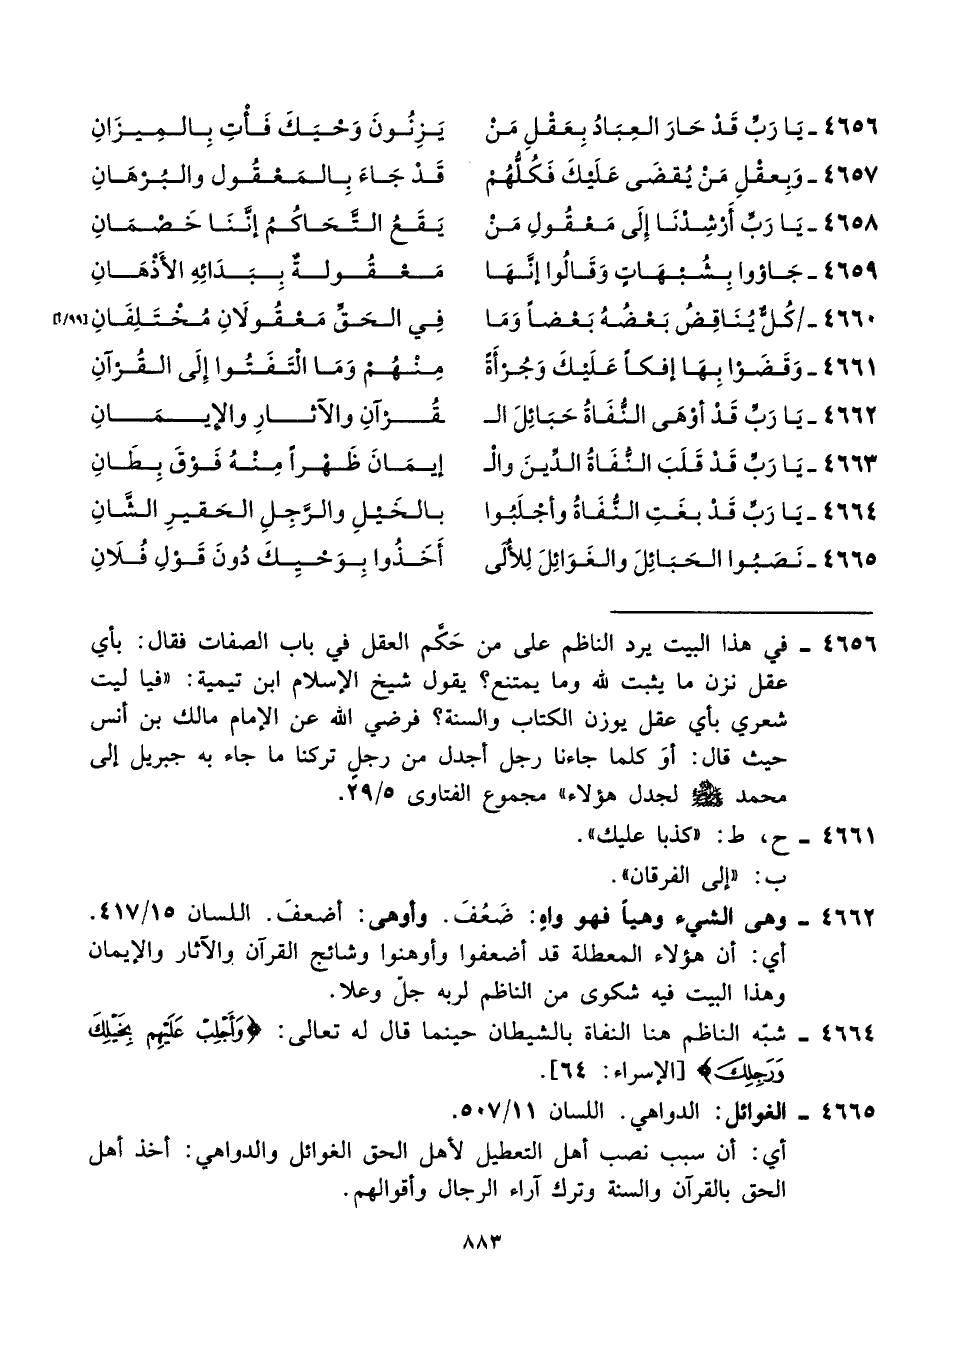 ٤٦٥٦ ـ يَا رَبِّ قَدْ حَارَ العِبَادُ بِعَقْلِ مَنْ يَزِنُونَ وَحْيَكَ فَأْتِ بِالمِيزَانِ
٤٦٥٧ ـ وَبِعقْلِ مَنْ يُقضَى عَلَيكَ فَكُلُّهُمْ قَدْ جَاءَ بِالمَعْقُول والبُرْهَانِ
٤٦٥٨ ـ يَا رَبِّ أَرْشِدْنَا إلَى مَعْقُولِ مَنْ يَقَعُ التَّحَاكُمُ إنَّنَا خَصْمَانِ
٤٦٥٩ ـ جَاؤوا بِشُبْهَاتٍ وَقَالُوا إنَّهَا مَعْقُولةٌ بِبَدَائِهِ الأَذْهَانِ
٤٦٦٠ ـ /كُلٌّ يُنَاقِضُ بَعْضُهُ بَعْضاً وَمَا فِي الحَقِّ مَعْقُولَانِ مُخْتَلِفَانِ [٩٩/أ]
٤٦٦١ ـ وَقَضَوْا بِهَا إفكاً عَلَيكَ وَجُرْأَةً مِنْهُمْ وَمَا الْتَفَتُوا إلَى القُرْآنِ
٤٦٦٢ ـ يَا رَبِّ قَدْ أوْهَى النُّفَاةُ حَبَائِلَ الـ ـقُرْآنِ والآثارِ والإيمَانِ
٤٦٦٣ ـ يَا رَبِّ قَدْ قَلَبَ النُّفَاةُ الدِّينَ والْـ إيمَانَ ظَهْراً مِنْهُ فَوْقَ بِطَانِ
٤٦٦٤ ـ يَا رَبِّ قَدْ بغَتِ النُّفَاةُ وأجْلَبُوا بالخَيْلِ والرَّجِلِ الحَقيرِ الشَّانِ
٤٦٦٥ ـ نَصَبُوا الحَبَائِلَ والغَوَائِلَ لِلأُلَى أَخَذُوا بِوَحْيِكَ دُونَ قَوْلِ فُلَانِ
٤٦٥٦ ـ في هذا البيت يرد الناظم على من حَكَّم العقل في باب الصفات فقال: بأي
عقل نزن ما يثبت لله وما يمتنع؟ يقول شيخ الإسلام ابن تيمية: «فيا ليت
شعري بأي عقل يوزن الكتاب والسنة؟ فرضي الله عن الإمام مالك بن أنس
حيث قال: أوَ كلما جاءنا رجل أجدل من رجلٍ تركنا ما جاء به جبريل إلى
محمد ﷺ لجدل هؤلاء» مجموع الفتاوى ٢٩/٥.
٤٦٦١ ـ ح، ط: «كذبا عليك».
ب: «إلى الفرقان».
٤٦٦٢ ـ وهى الشيء وهياً فهو واهٍ: ضَعُفَ. وأوهى: أضعفَ. اللسان ٤١٧/١٥.
أي: أن هؤلاء المعطلة قد أضعفوا وأوهنوا وشائج القرآن والآثار والإيمان
وهذا البيت فيه شكوى من الناظم لربه جلّ وعلا.
٤٦٦٤ ـ شبّه الناظم هنا النفاة بالشيطان حينما قال له تعالى: ﴿وَأَجْلِبْ عَلَيْهِم بِخَيْلِكَ
وَرَجِلِكَ﴾ [الإسراء: ٦٤].
٤٦٦٥ ـ الغوائل: الدواهي. اللسان ٥٠٧/١١.
أي: أن سبب نصب أهل التعطيل لأهل الحق الغوائل والدواهي: أخذ أهل
الحق بالقرآن والسنة وترك آراء الرجال وأقوالهم.
٨٨٣